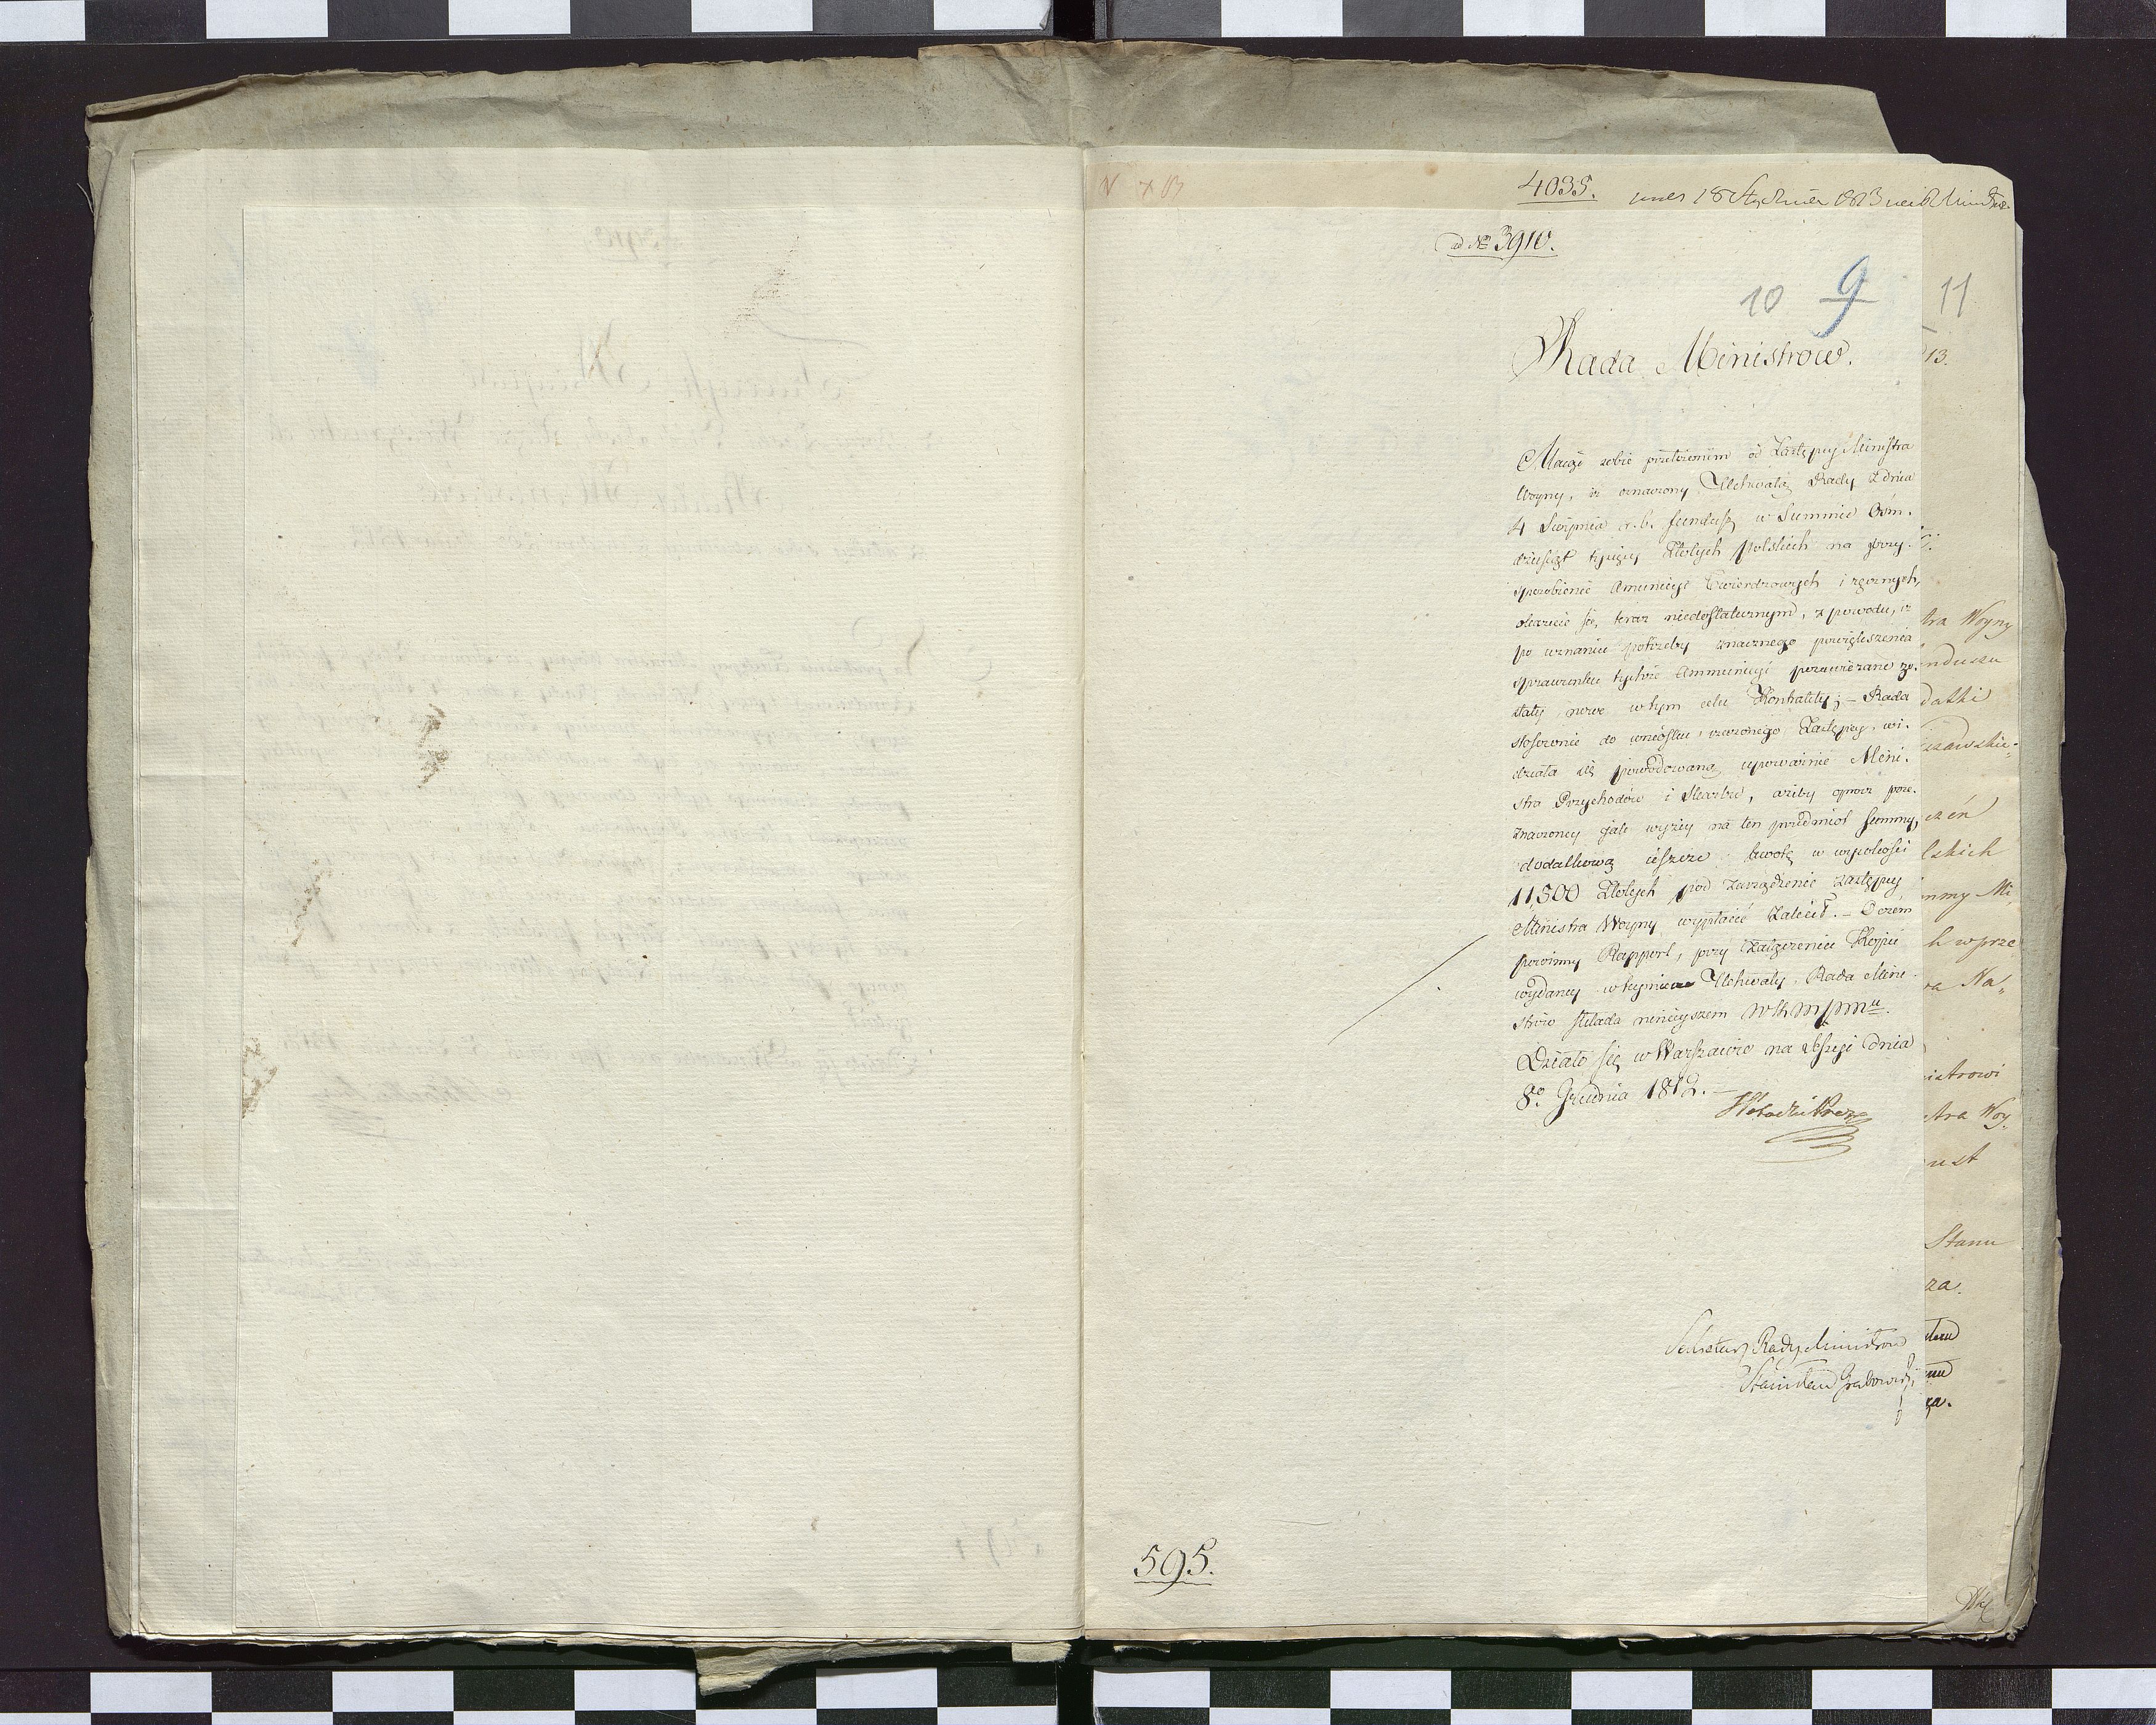 4035.
18 Stycznia 1813
ad N° 3910.
10 9 11
Rada Ministrow.
13.
Maiąc sobie przełożonem od Zastępcy Ministra
Woyny, iż oznaczony Uchwałą Rady z dnia
4 Sierpnia r. b. fundusz w Summie Ośm-
dziesiąt tysięcy Złotych polskich na przy-
sposobienie Amunicyi Twierdzowych i ręcznych,
okazuie się teraz niedostatecznym, z powodu, iż
po uznaniu potrzeby znacznego powiększenia
sprawunku tychże Ammunicyi pozawierane zo-
stały nowe w tym celu Kontrakty; – Rada
stosownie do wniosku rzeczonego Zastępcy, wi-
działa się powodowaną upoważnić Mini-
stra Przychodów i Skarbu, ażeby oprócz prze-
znaczoney jak wyżey na ten przedmiot Summy,
dodatkową ieszcze kwotę w wysokości
11,500 Złotych pod zarządzenie Zastępcy
Ministra Woyny wypłacić zalecił. – O czém
powinny Rapport, przy załączeniu Kopii
wydaney w tym Uchwały, Rada Mini-
strów składa ninieyszem
Działo się w Warszawie na Sessyi dnia
8° Grudnia 1812. –
Sekretarz Rady Ministrow
Stanisław Grabowski
595.
tra Woyny
nduszu
datki
szawskie-
lskich
mmy Mi-
h w prze
ra Na-
istrowi
stra Woy-
Stanu
za.